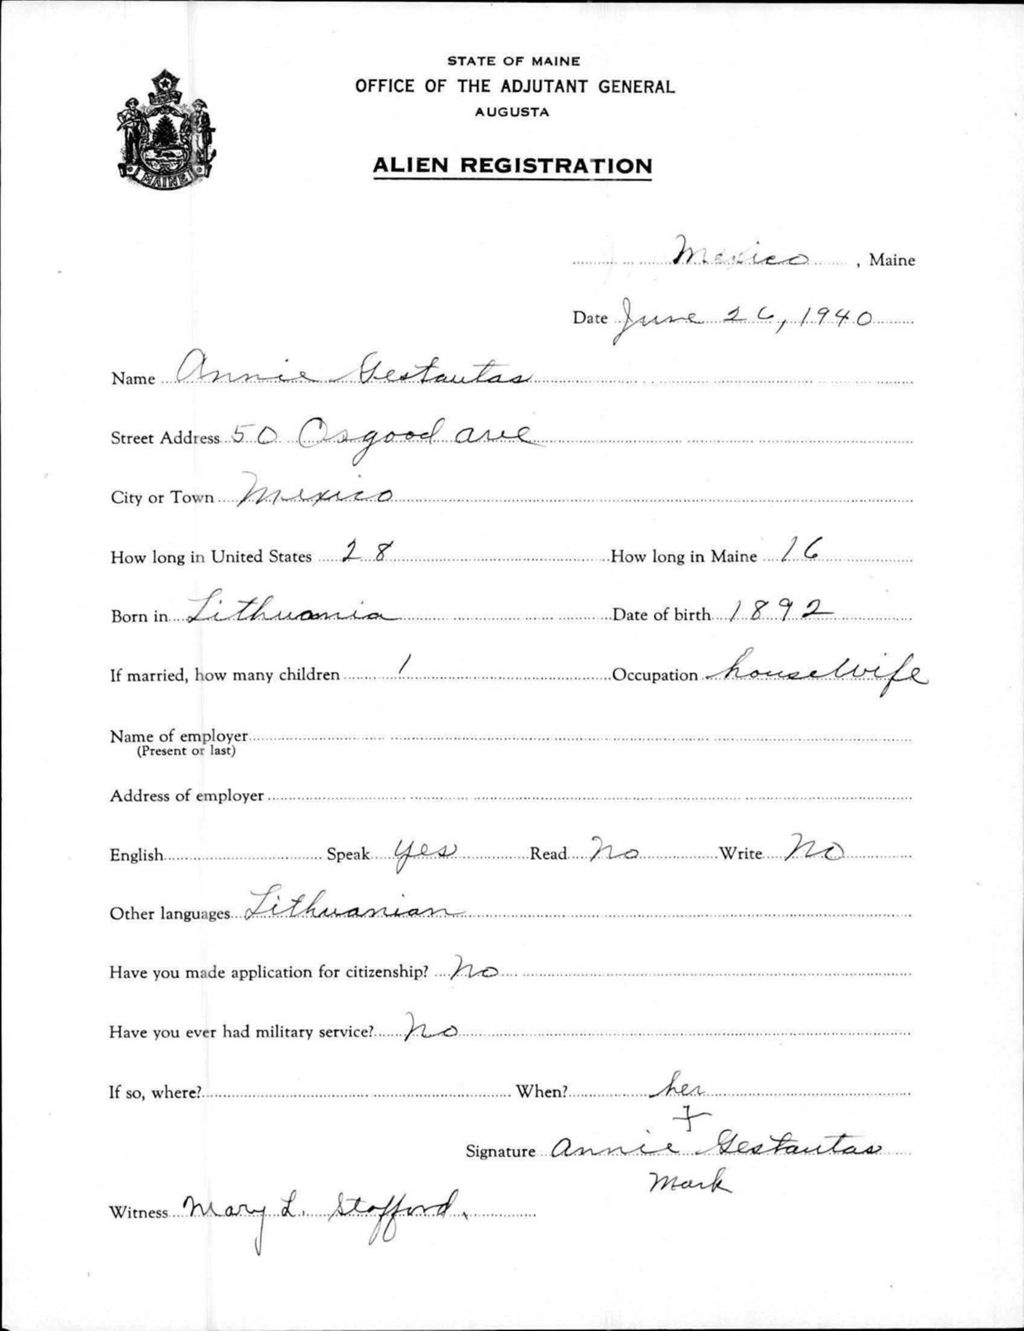 STATE OF MAINE
OFFICE OF THE ADJUTANT GENERAL
AUGUSTA
ALIEN REGISTRATION
MAINE
Mexico, Maine
Date June 26, 1940
Name Annie Gestautas
Street Address 50 Osgood ave
City or Town Mexico
How long in United States 28 How long in Maine 16
Born in Lithuania Date of birth 1892
If married, how many children 1 Occupation housewife
Name of employer
(Present or last)
Address of employer
English Speak yes Read No Write No
Other languages Lithuanian
Have you made application for citizenship? No
Have you ever had military service? no
If so, where? When?
her
+
Signature Annie Gestautas
Mark
Witness Mary L. Stofford.